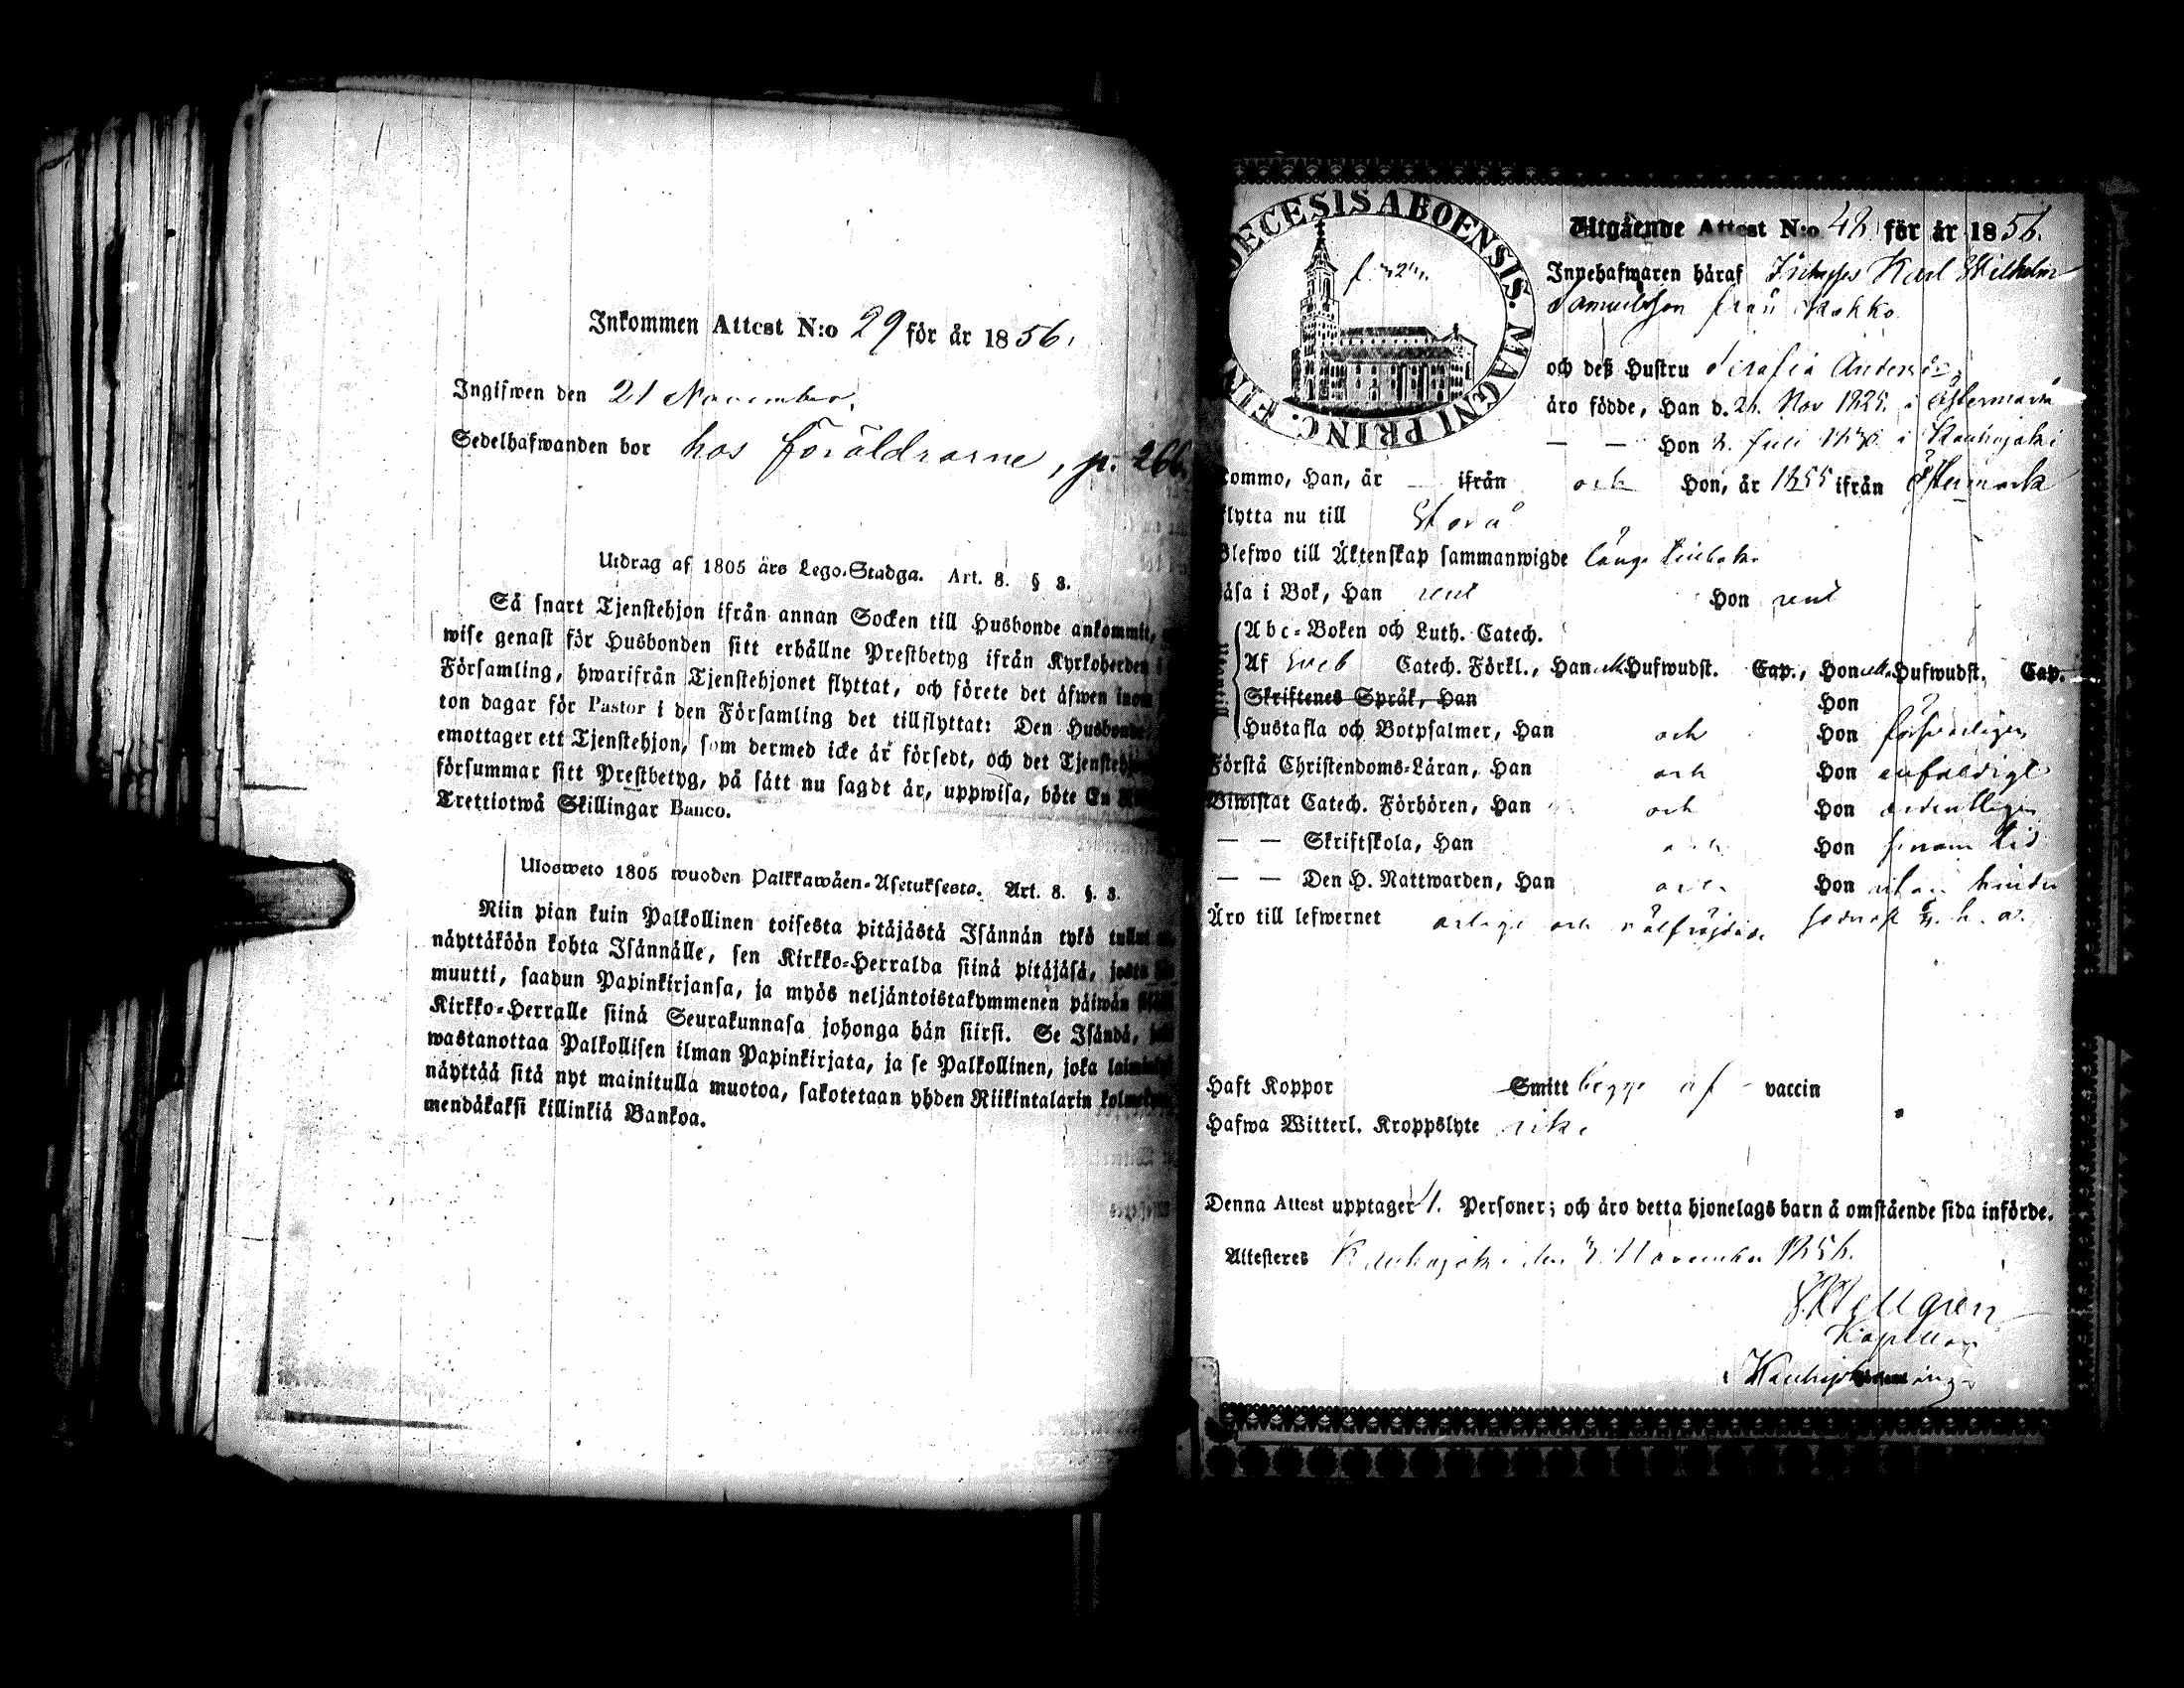 Inkommen Attest N:o 29 för år 1856.
Ingifwen den 21 November.
Sedelhafwanden bor hos föräldrarne, p. 266
Utdrag af 1805 års Lego-Stadga. Art. 8. § 3.
Så snart Tjenstehjon ifrån annan Socken till Husbonde ankommit,
wise genast för Husbonden sitt erhållne Prestbetyg ifrån Kyrkoherden i
Församling, hwarifrån Tjenstehjonet flyttat, och förete det äfwen inom
ton dagar för Pastor i den Församling det tillflyttat: Den Husbonde
emottager ett Tjenstehjon, som dermed icke är försedt, och det Tjenstehjon
försummar sitt Prestbetyg, på sätt nu sagdt är, uppwisa, böte En
Trettiotwå Skillingar Banco.
Ulosweto 1805 wuoden Palkkawäen-Asetuksesta. Art. 8. §. 3.
Niin pian kuin Palkollinen toisesta pitäjästä Isännän tykö tullut
näyttäköön kohta Isännälle, sen Kirkko-Herralda siinä pitäjäsä, josta
muutti, saadun Papinkirjansa, ja myös neljäntoistakymmenen päiwän
Kirkko-Herralle siinä Seurakunnasa johonga hän siirsi. Se Isändä,
wastanottaa Palkollisen ilman Papinkirjata, ja se Palkollinen, joka
näyttää sitä nyt mainitulla muotoa, sakotetaan yhden Riikintalarin
mendäkaksi killinkiä Bankoa.
DECESIS ABOENSIS. MAGNI PRINC. FIN
Utgående Attest N:o 48 för år 1856.
Innehafwaren häraf Karl Wilhelm
Samuelsson från
och deß Hustru Serafia Anders
äro födde, Han d. Nov 1825. i Östermark
— — Hon 2. Juli i Kauhajoki
kommo, Han, år — ifrån och Hon, år 1855 ifrån Östermark
flytta nu till Storå
Blefwo till Äktenskap sammanwigde länge tillbaka
läsa i Bok, Han rent Hon rent
Abc-Boken och Luth. Catech.
Af Sveb Catech. Förkl., Han Hufwudst. Cap., Hon Hufwudst. Cap.
Skriftenes Språk, Han Hon
Hustafla och Botpsalmer, Han och Hon
Förstå Christendoms-Läran, Han och Hon enfaldigt
Biwistat Catech. Förhören, Han och Hon ordentligen
— — Skriftskola, Han och Hon sin tid
— — Den H. Nattwarden, Han och Hon utan hinder
Äro till lefwernet ärliga och välfrejdade
Haft Koppor Smitt begge af vaccin
Hafwa Witterl. Kroppslyte icke
Denna Attest upptager 4. Personer; och äro detta hjonelags barn å omstående sida införde.
Attesteres Kauhajoki den 3 November 1856.
Kapellan
i Kauhajoki